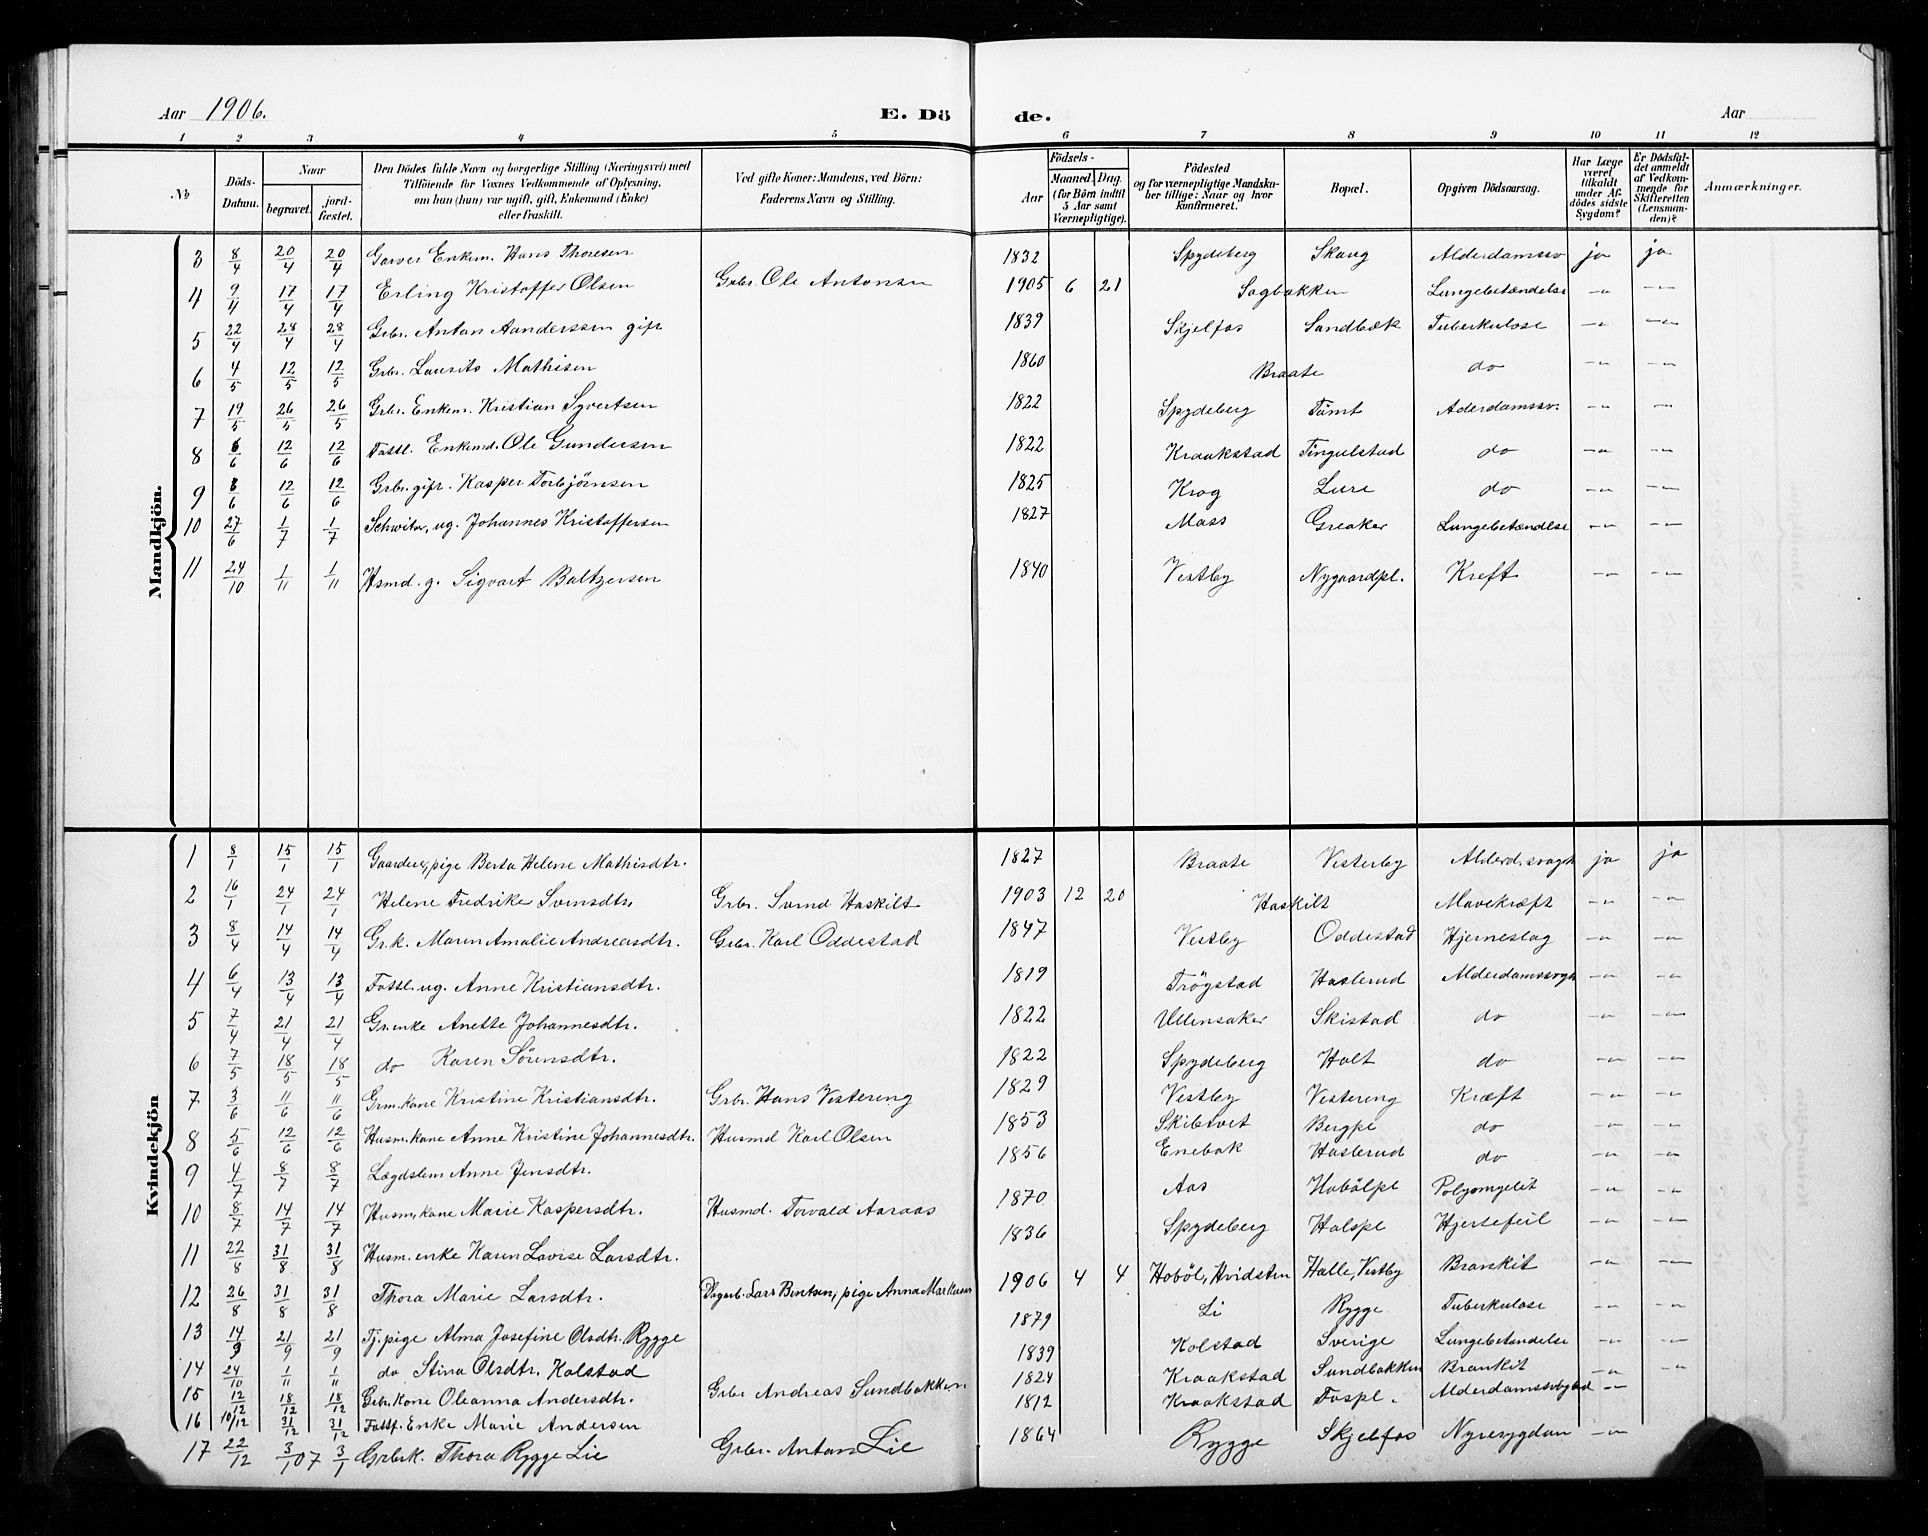 Aar 1906. E. Dö de. Aar
1 2 3 4 5 6 7 8 9 10 11 12
№ | Döds-Datum. | Naar begravet. | jord-fæstet. | Den Dödes fulde Navn og borgerlige Stilling (Næringsvei) med Tilföiende for Voxnes Vedkommende af Oplysning, om han (hun) var ugift, gift, Enkemand (Enke) eller fraskilt. | Ved gifte Koner: Mandens, ved Börn: Faderens Navn og Stilling. | Födsels- Aar | Maaned. | Dag. (for Börn indtil 5 Aar samt Værnepligtige). | Födested og for værnepligtige Mandskaber tillige: Naar og hvor konfirmeret. | Bopæl. | Opgiven Dödsaarsag. | Har Læge været tilkaldt under Afdödes sidste Sygdom? | Er Dödsfaldet anmeldt af Vedkommende for Skifteretten (Lensmanden)? | Anmærkninger.
Mandkjön.
3 8/4 20/4 20/4 Garver Enkem. Hans Thoresen 1832 Spydeberg Skaug Alderdamssv ja ja
4 9/4 17/4 17/4 Erling Kristoffer Olsen Grbr. Ole Antonsen 1905 6 21 Sagbakken Lungebetændelse -"- -"-
5 22/4 28/4 28/4 Grbr. Anton Aanderssen gift 1839 Skjelfos Sandbæk Tuberkulose -"- -"-
6 4/5 12/5 12/5 Grbr. Lausits Mathisen 1860 Braate do -"- -"-
7 19/5 26/5 26/5 Grbr. Enkem. Kristian Syvertsen 1822 Spydeberg Tömt Aderdamssv. -"- -"-
8 6/6 12/6 12/6 Fattl. Enkemd. Ole Gundersen 1822 Kraakstad Tingulstad do -"- -"-
9 8/6 12/6 12/6 Grbr. gift. Kasper Torbjörnsen 1825 Krog Lure do -"- -"-
10 27/6 1/7 1/7 ug. Johannes Kristoffersen 1827 Mass Greaker Lungebetændelse -"- -"-
11 24/10 1/11 1/11 Hsmd. g. Sigvart Baltzersen 1840 Vestby Nygaardpl. Kreft -"- -"-
Kvindekjön
1 8/1 15/1 15/1 Gaardeier, pige Berta Helene Mathisdtr. 1827 Braate Vesterby Alderd.svagh ja ja
2 16/1 24/1 24/1 Helene Fredrike Svensdtr. Grbr. Svend Haskilt 1903 12 20 Haskilt Mavekræft -"- -"-
3 8/4 14/4 14/4 Gr.k. Maren Amalie Andreasdtr. Grbr. Karl Oddestad 1847 Vestby Oddestad Hjerneslag -"- -"-
4 6/4 13/4 13/4 Fattl. ug. Anne Kristiansdtr. 1819 Trögstad Haslerud Alderdamssvgh -"- -"-
5 7/4 21/4 21/4 Gr.enke Anette Johannesdtr. 1822 Ullensaker Skistad do -"- -"-
6 7/5 18/5 18/5 do Karen Sörensdtr. 1822 Spydeberg Holt do -"- -"-
7 3/6 11/6 11/6 Grm.kone Kristine Kristiansdtr. Grbr. Hans Vestereng 1829 Vestby Vestereng Kræft -"- -"-
8 5/6 12/6 12/6 Husm.kone Anne Kristine Johannesdtr. Husmd Karl Olsen 1853 Skibtvet Bergpl do -"- -"-
9 4/7 8/7 8/7 Lægdslem Anne Jensdtr. 1856 Enebak Haslerud do -"- -"-
10 8/7 14/7 14/7 Husm.kone Marie Kaspersdtr. Husmd. Torvald Aaraas 1870 Aas Hobölpl Polyomyelit -"- -"-
11 22/8 31/8 31/8 Husm. enke Karen Lovise Larsdtr. 1836 Spydeberg Holspl Hjertefeil -"- -"-
12 26/8 31/8 31/8 Thora Marie Larsdtr. Dagarb. Lars Bentsen, pige Anna Markusen 1906 4 4 Hoböl, Hvidsten Halle, Vestby Bronkit -"- -"-
13 14/9 21/9 21/9 Tj.pige Alma Josefine Olsdtr. Rygge 1879 Li Rygge Tuberkulose -"- -"-
14 24/10 1/11 1/11 do Stina Olsdtr. Kolstad 1839 Kolstad Sverige Lungebetændelse -"- -"-
15 12/12 18/12 18/12 Grbr. Kone Oleanna Andersdtr. Grbr Andreas Sundbakken 1824 Kraakstad Sundbakken Bronkit -"- -"-
16 10/12 31/12 31/12 Fattf. Enke Marie Andersen 1812 Kraakstad Fospl. -"-
17 22/12 3/1 07 3/1 Grbrk. Thora Rygge Lie Grbr. Anton Lie 1864 Rygge Skjelfos Nyresygdom -"-